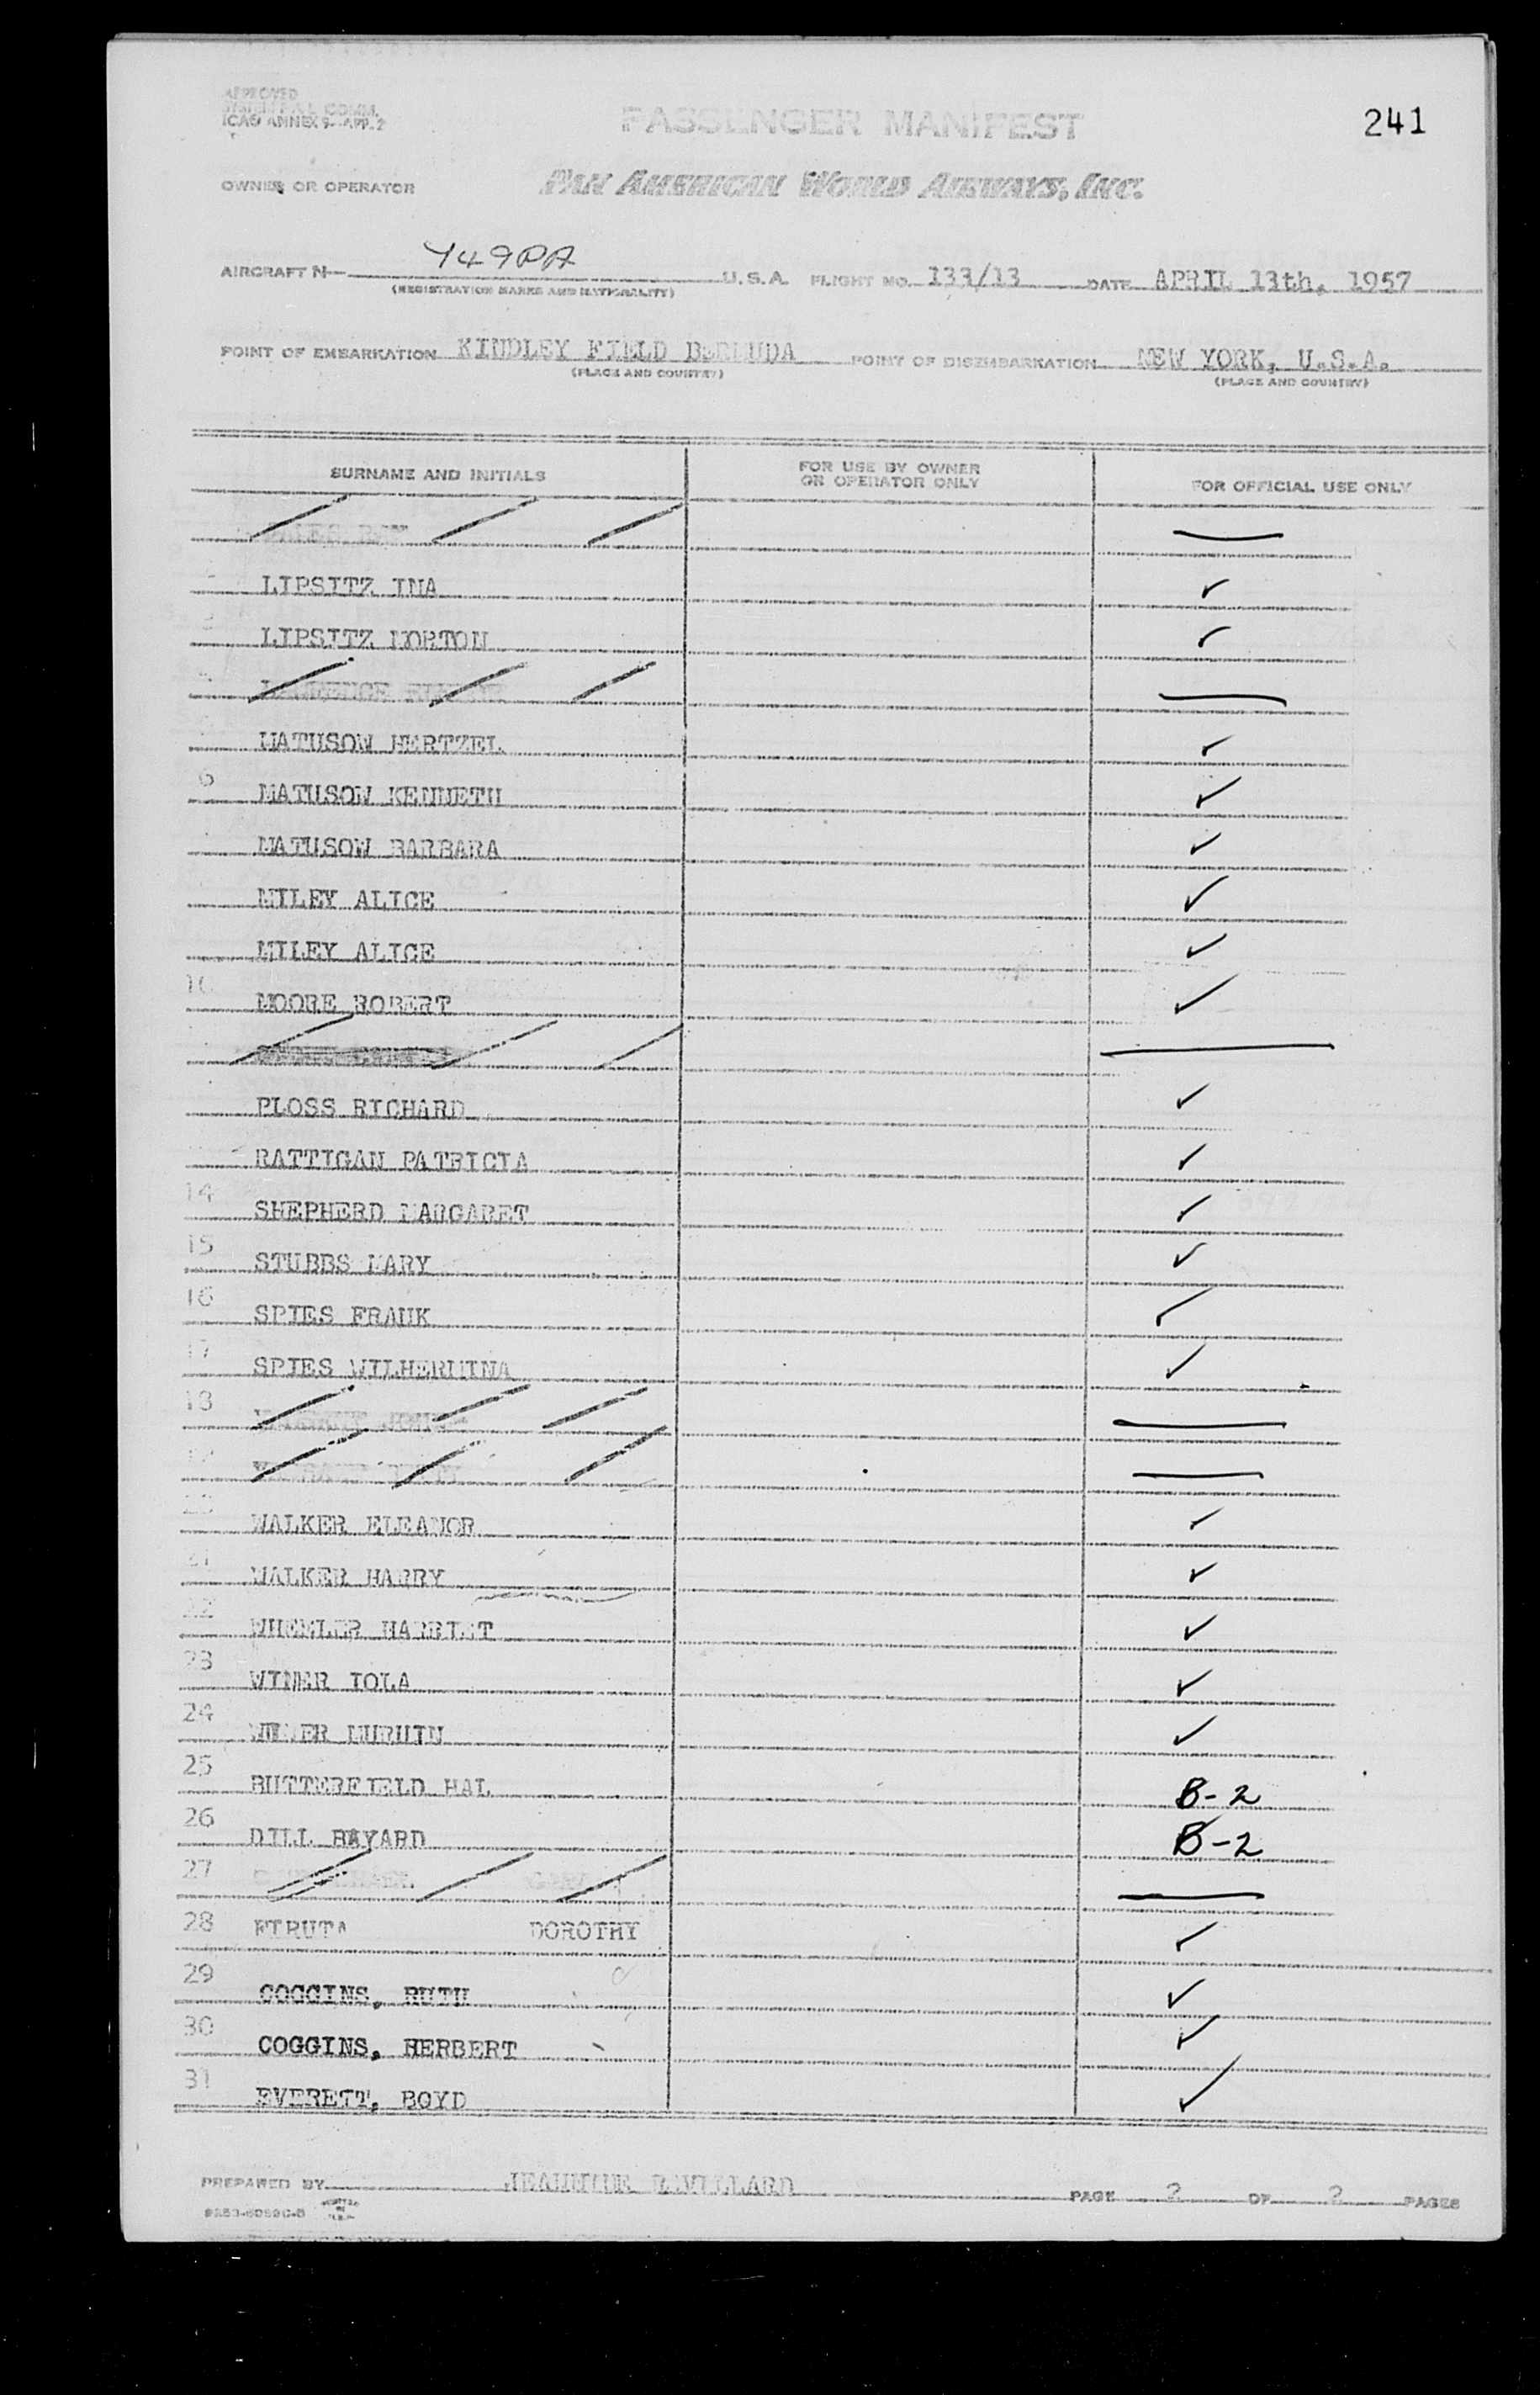 APPROVED
ICAO ANNEX 9-APP. 2
PASSENGER MANIFEST
241
OWNER OR OPERATOR
PAN AMERICAN WORLD AIRWAYS, INC.
AIRCRAFT N- 749PA U.S.A. FLIGHT NO. 133/13 DATE APRIL 13th, 1957
(REGISTRATION MARKS AND NATIONALITY)
POINT OF EMBARKATION KINDLEY FIELD BERMUDA POINT OF DISEMBARKATION NEW YORK, U.S.A.
(PLACE AND COUNTRY) (PLACE AND COUNTRY)
SURNAME AND INITIALS FOR USE BY OWNER OR OPERATOR ONLY FOR OFFICIAL USE ONLY
LIPSITZ INA ✓
LIPSITZ MORTON ✓
MATUSOW HERTZEL ✓
6 MATUSOW KENNETH ✓
MATUSOW BARBARA ✓
MILEY ALICE ✓
MILEY ALICE ✓
10 MOORE ROBERT ✓
PLOSS RICHARD ✓
RATTIGAN PATRICIA ✓
14 SHEPHERD MARGARET ✓
15 STUBBS MARY ✓
16 SPIES FRANK ✓
17 SPIES WILHERMINA ✓
18
19
20 WALKER ELEANOR ✓
21 WALKER HARRY ✓
22 WHEELER HARRIET ✓
23 WINER IOLA ✓
24 ✓
25 BUTTERFIELD HAL B-2
26 DILL BAYARD B-2
27
28 FIRUTA DOROTHY ✓
29 COGGINS, RUTH ✓
30 COGGINS, HERBERT ✓
31 EVERETT, BOYD ✓
PREPARED BY PAGE 2 OF 2 PAGES